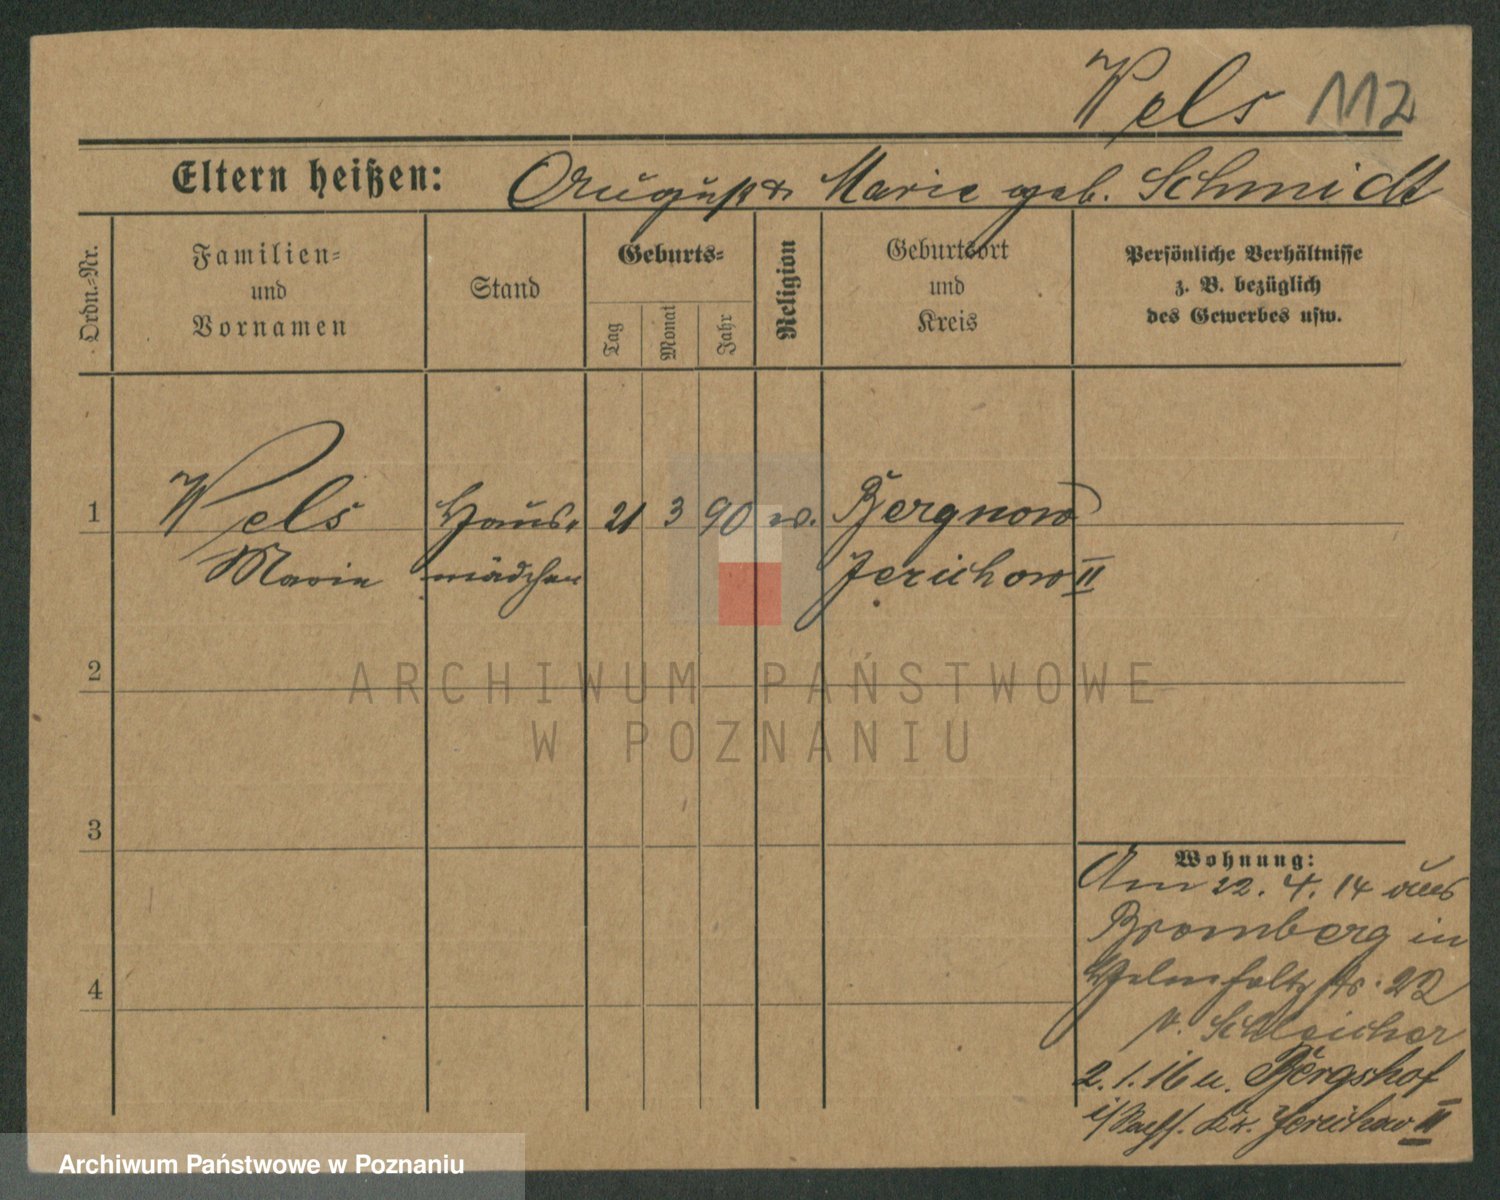 Wels 112
Eltern heißen: August & Marie geb. Schmidt
Ordn.-Nr.
Familien-
und
Vornamen
Stand
Geburts-
Tag
Monat
Jahr
Religion
Geburtsort
und
Kreis
Persönliche Verhältnisse
z. B. bezüglich
des Gewerbes usw.
1 Wels Haus- 21 3 90 w. Bergnow
Marie mädchen Jerichow II
2
3
4
Wohnung:
Am 22. 4. 14 aus
Bromberg in
v. Schleicher
2. 1. 16 u. Bergshof
i/ Kr. Jerichow II
ARCHIWUM PAŃSTWOWE
W POZNANIU
Archiwum Państwowe w Poznaniu